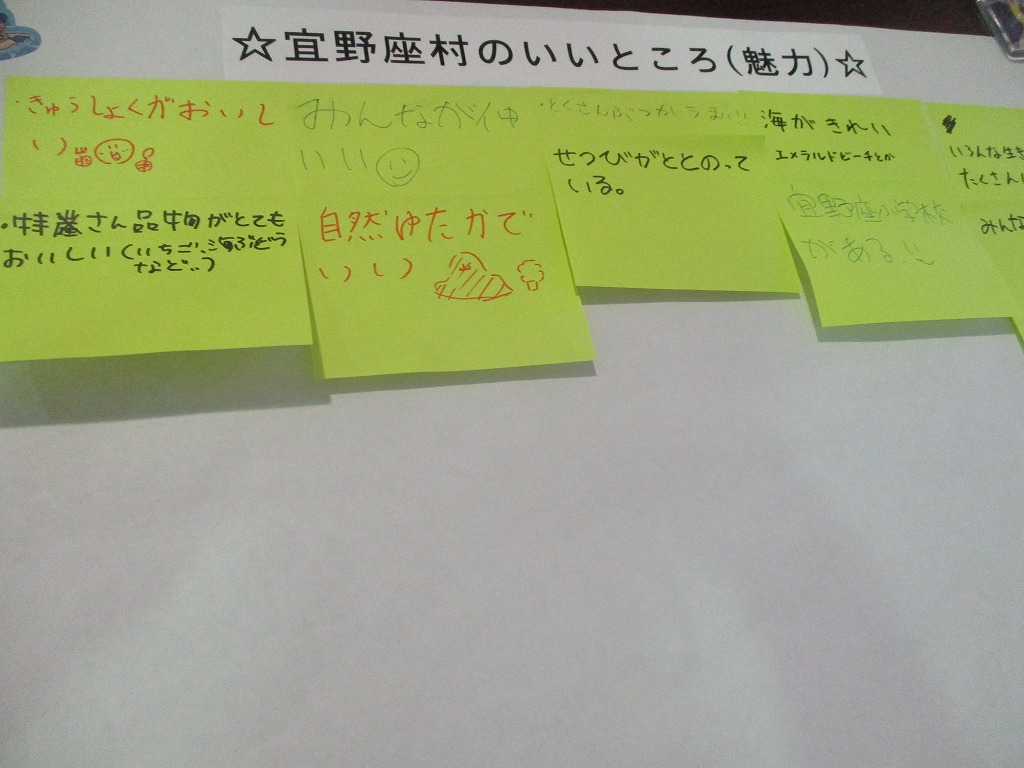 ☆宜野座村のいいところ(魅力)☆
・きゅうしょくがおいし
い
みんなが仲
いい
・とくさんぶつがうまい!!
海がきれい
エメラルドビーチとか
いろんな生き
たくさんい
・特産さん品物がとても
おいしい(いちご、海ぶどう
など…)
自然ゆたかで
いい
せつびがととのって
いる。
宜野座小学校
がある
みんな